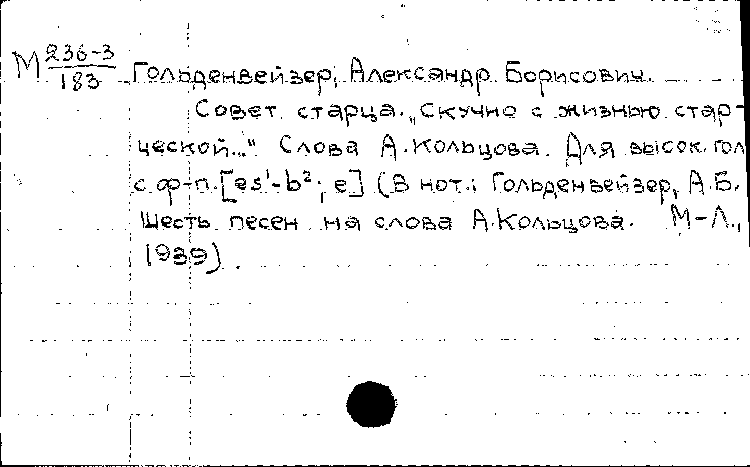 М 236-3
183 Гольденвейзер, Александр Борисович.
Совет старца. „Скучно с жизнью стар-
ческой..." Слова А. Кольцова. Для высок. гол
с ф-п. [es¹-b²; e] (В нот.: Гольденвейзер, А.Б.
Шесть песен на слова А. Кольцова. М-Л.,
1939).